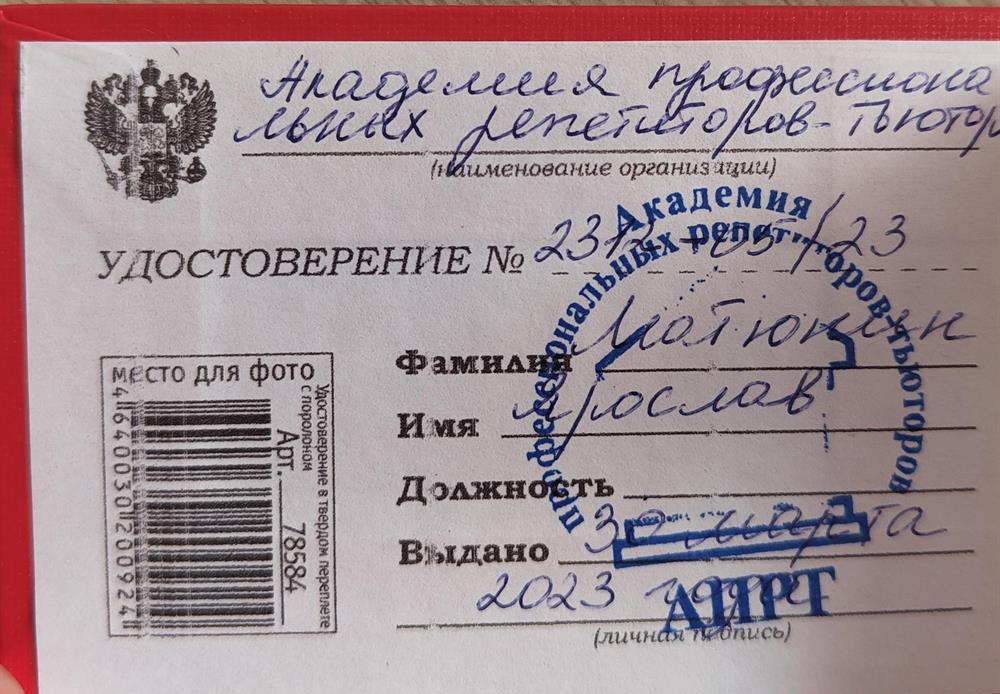 Академия профессиона
льных репетиторов-Тьютор
(наименование организации)
УДОСТОВЕРЕНИЕ № 2312-05/23
Академия
профессиональных репетиторов-тьюторов
Фамилия Матюнин
Имя Ярослав
Должность
Выдано 30 марта
2023 года
АПРТ
(личная подпись)
место для фото
Удостоверение в твердом переплете
с поролоном
Арт. 78584
4640030120924